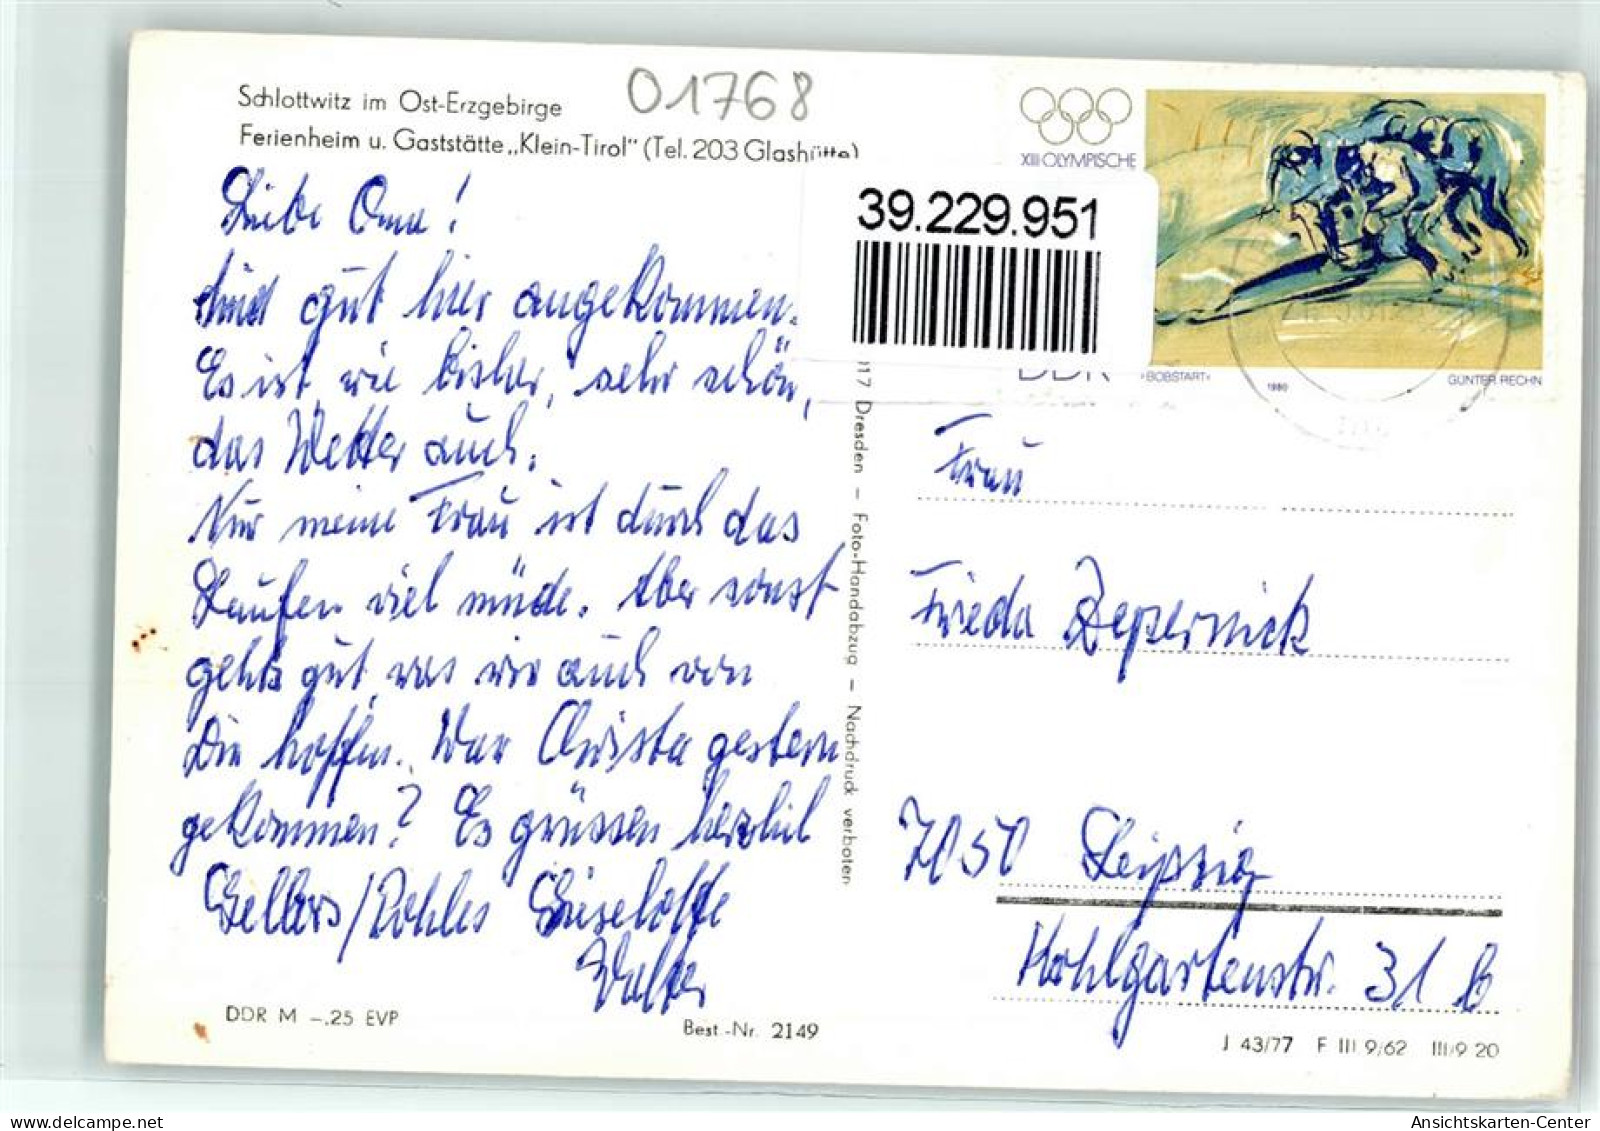 Schlottwitz im Ost-Erzgebirge
Ferienheim u. Gaststätte „Klein-Tirol" (Tel. 203 Glashütte)
01768
XIII OLYMPISCHE
39.229.951
DDR
›BOBSTART‹
1980
GÜNTER RECHN
Liebe Oma!
sind gut hier angekommen.
Es ist, wie bisher, sehr schön,
das Wetter auch.
Nur meine Frau ist durch das
Laufen viel müde. Aber sonst
gehts gut, was wir auch von
Dir hoffen. War Christa gestern
gekommen? Es grüssen herzlich
Lieselotte
Walter
017 Dresden – Foto-Handabzug – Nachdruck verboten
Frau
Frieda Zepernick
7050 Leipzig
Kohlgartenstr. 31 b
DDR M –.25 EVP
Best.-Nr. 2149
J 43/77 F III 9/62 III/9 20
Ansichtskarten-Center